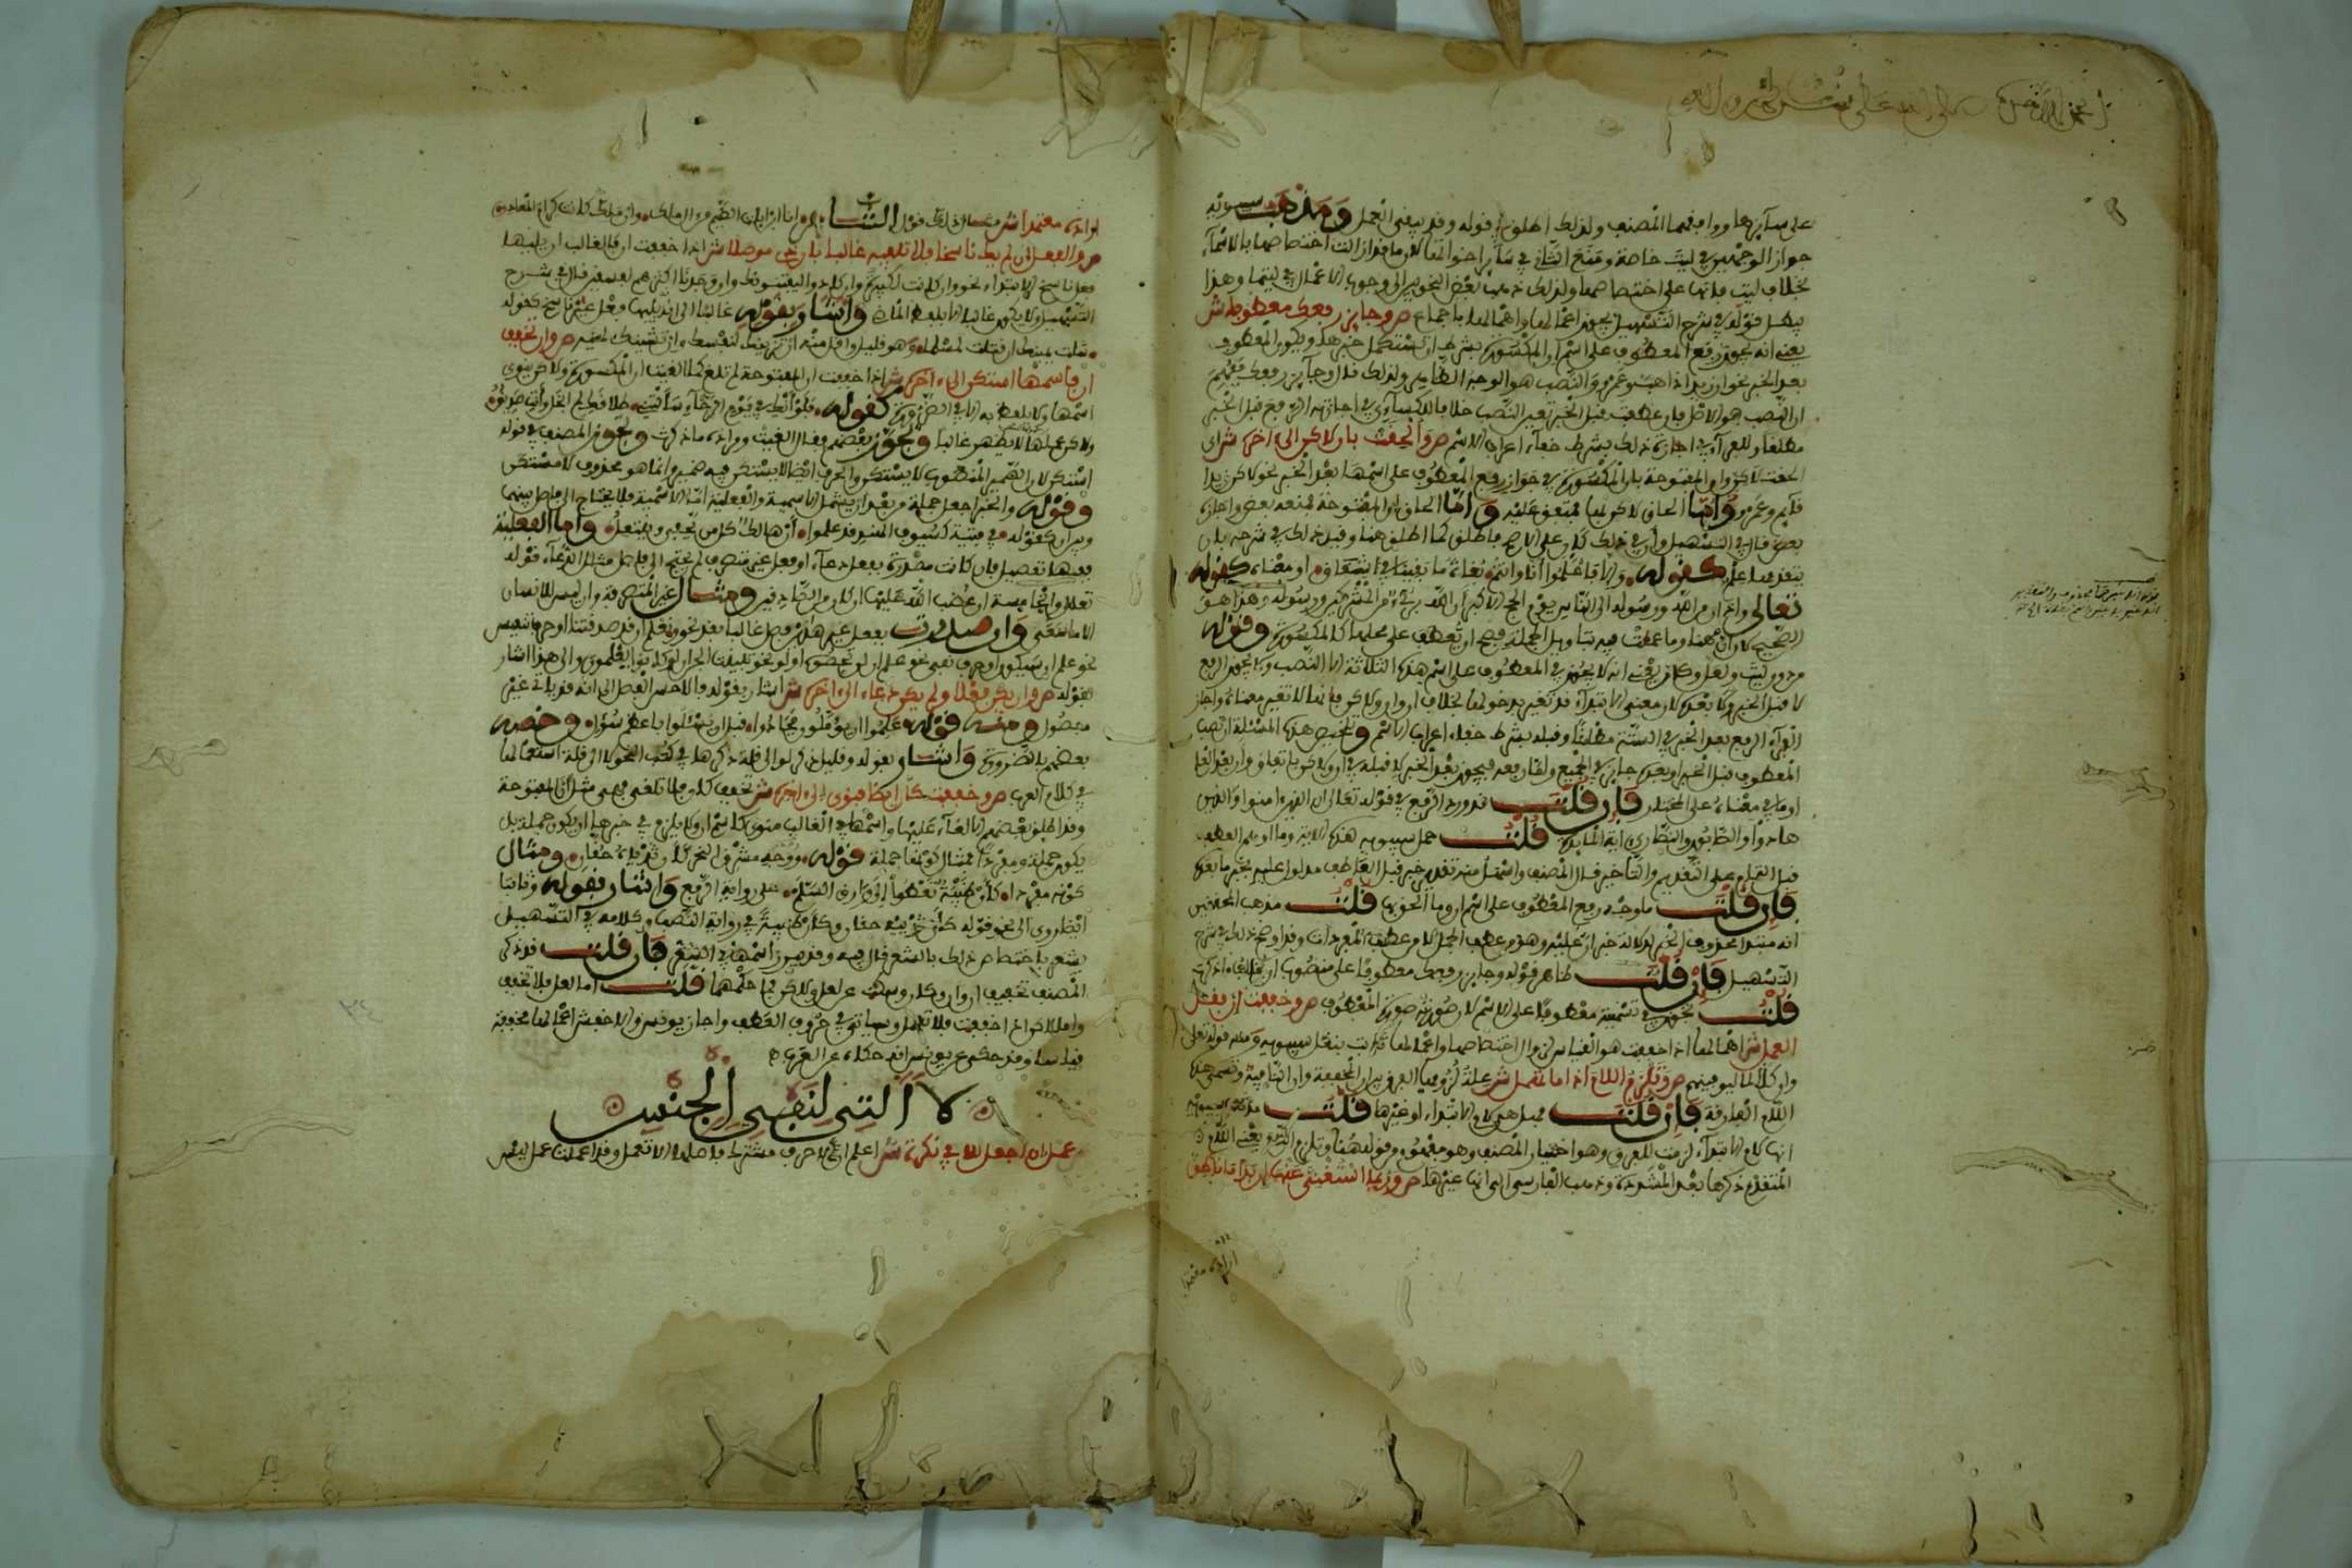 على سائرها ووافقهما المصنف ولذلك اطلق في قوله وقد يبقى العمل ومذهب سيبويه
جواز الوجهين في ليت خاصة ومنع الثاني في سائر اخواتها لان ما قد ازالت اختصاصها بالاسماء
بخلاف ليت فانها على اختصاصها ولذلك ذهب بعض النحويين الى وجوب الاعمال في ليتما وهذا
يبطل قوله في شرح التسهيل يجوز اعمالها واهمالها باجماع ص وجائز رفعك معطوفا ش
يعني انه يجوز رفع المعطوف على اسم ان المكسورة بشرط ان تستكمل خبرها ويكون المعطوف
بعد الخبر نحو ان زيدا ذاهب وعمرو والنصب هو الوجه الظاهر ولذلك قال وجائز رفعك ففهم
ان النصب هو الاصل فان عطفت قبل الخبر تعين النصب خلافا للكسائي في اجازته الرفع قبل الخبر
مطلقا وللفراء في اجازة ذلك بشرط خفاء اعراب الاسم ص والحقت بان لاكن الى اخره ش اي
الحقت لاكن وان المفتوحة بان المكسورة في جواز رفع المعطوف على اسمها بعد الخبر نحو لاكن زيدا
قائم وعمرو واما الحاق لاكن بها فمتفق عليه واما الحاق ان المفتوحة فمنعه بعض واجازه
بعض قال في التسهيل وان في ذلك كان على الاصح فاطلق كما اطلق هنا وقيد ذلك في شرحه بان
يتقدمها علم كقوله والا فاعلموا انا وانتم بغاة ما بقينا في شقاق او معناه كقوله
تعالى واذان من الله ورسوله الى الناس يوم الحج الاكبر ان الله بريء من المشركين ورسوله هذا هو
الصحيح لان ان هنا وما عملت فيه بتاويل الجملة فصح ان تعطف على محلها كالمكسورة وقوله
من دون ليت ولعل وكان يعني انه لا يجوز في المعطوف على اسم هذه الثلاثة الا النصب ولا يجوز الرفع
لا قبل الخبر ولا بعده لان معنى الابتداء قد تغير بدخولها بخلاف ان وان ولاكن فانها لا تغير معناه واجاز
الفراء الرفع بعد الخبر في الستة مطلقا وقبله بشرط خفاء اعراب الاسم وتلخيص هذه المسئلة ان نصب
المعطوف قبل الخبر وبعده جائز في الجميع واما رفعه فيجوز بعد الخبر لا قبله في ان ولاكن باتفاق وان بعد العلم
او ما في معناه على المختار فان قلت قد ورد الرفع في قوله تعالى ان الذين امنوا والذين
هادوا والصابئون والنصارى اية المائدة قلت حمل سيبويه هذه الاية وما اوهم العطف
قبل التمام على التقديم والتاخير قال المصنف واسهل منه تقدير خبر قبل العاطف مدلول عليه بخبر ما بعده
فان قلت ما وجه رفع المعطوف على اسم ان وما الحق بها قلت مذهب المحققين
انه مبتدا محذوف الخبر لدلالة خبر ان عليه وهو من عطف الجمل لا من عطف المفردات وقد اوضح ذلك في شرح
التسهيل فان قلت ظاهر قوله وجائز رفعك معطوفا على منصوب ان
قلت تجوز في تسميته معطوفا على الاسم لان صورته صورة المعطوف ص وخففت ان فقل
العمل ش اهمالها اذا خففت هو القياس لزوال اختصاصها واعمالها ثابت بنقل سيبويه ومنه قوله تعلى
وان كلا لما ليوفينهم ص وتلزم اللام اذا ما تهمل ش علة لزومها الفرق بين ان المخففة وان النافية وتسمى هذه
اللام الفارقة فان قلت فهل هي لام الابتداء او غيرها قلت مذهب سيبويه
انها لام الابتداء لزمت للفرق وهو اختيار المصنف وهو مفهوم قوله هنا وتلزم اللام يعني اللام
المتقدم ذكرها بعد المشددة وذهب الفارسي الى انها غيرها ص وربما استغني عنها ان بدا ما ناطق
اراده معتمدا ش مثال ذلك قول الشاعر انا ابن اباة الضيم من ال مالك وان مالك كانت كرام المعادن
ص والفعل ان لم يك ناسخا فلا تلفيه غالبا بان ذي موصلا ش اذا خففت ان فالغالب ان يليها
فعل ناسخ للابتداء نحو وان كانت لكبيرة وان كادوا ليفتنونك وان وجدنا اكثرهم لفاسقين قال في شرح
التسهيل ولا يكون غالبا الا بلفظ الماضي واشار بقوله غالبا الى انه يليها فعل غير ناسخ كقوله
شلت يمينك ان قتلت لمسلما وهو قليل واقل منه ان يزينك لنفسك وان يشينك لهيه ص وان تخفف
ان فاسمها استكن الى اخره ش اذا خففت ان المفتوحة لم تلغ كما الغيت ان المكسورة ولاكن ينوى
اسمها ولا يلفظ به الا في الضرورة كقوله فلو انك في يوم الرخاء سالتني طلاقك لم ابخل وانت صديق
ولاكن عملها لا يظهر غالبا وتجوز بعضهم فقال الغيت ومراده ما ذكرت وتجوز المصنف في قوله
استكن لان الضمير المنصوب لا يستكن والحرف ايضا لا يستكن فيه ضمير وانما هو محذوف لا مستكن
وقوله والخبر اجعل جملة من بعد ان يشمل الاسمية والفعلية اما الاسمية فلا يحتاج الى فاصل بينها
وبين ان كقوله في فتية كسيوف الهند قد علموا ان هالك كل من يحفى وينتعل واما الفعلية
ففيها تفصيل فان كانت مصدرة بفعل دعاء او فعل غير متصرف لم يحتج الى فاصل مثال الدعاء قوله
تعالى والخامسة ان غضب الله عليها ان كان من الصادقين ومثال غير المتصرف وان ليس للانسان
الا ما سعى وان صدرت بفعل غيرهما فصل غالبا بقد نحو ونعلم ان قد صدقتنا او حرف تنفيس
نحو علم ان سيكون او حرف نفي نحو علم ان لن تحصوه او لو نحو تبينت الجن ان لو كانوا يعلمون والى هذا اشار
بقوله ص وان يكن فعلا ولم يكن دعا الى اخره ش اشار بقوله فالاحسن الفصل الى انه قد ياتي غير
مفصول ومنه قوله علموا ان يؤملون فجادوا قبل ان يسئلوا باعظم سؤل وخصه
بعضهم بالضرورة واشار بقوله وقليل ذكر لو الى قلة ذكرها في كتب النحو لا الى قلة استعمالها
في كلام العرب ص وخففت كان ايضا فنوي الى اخره ش تخفف كان فلا تلغى فهي مثل ان المفتوحة
وقد اطلق بعضهم الالغاء عليها واسمها في الغالب منوي كاسم ان ولا يلزم في خبرها ان يكون جملة بل
يكون جملة ومفردا فمثال كونها جملة قوله ووجه مشرق النحر كان ثدياه حقان ومثال
كونه مفردا كان ظبية تعطو الى وارق السلم على رواية الرفع واشار بقوله وثابتا
ايضا روي الى نحو قوله كان ثدييه حقان وكان ظبية في رواية النصب وكلامه في التسهيل
يشعر باختصاص ذلك بالشعر قال فيه وقد يبرز اسمها في الشعر فان قلت قد ذكر
المصنف تخفيف ان وان وكان وسكت عن لعل ولاكن فما حكمهما قلت اما لعل فلا تخفف
واما لاكن اذا خففت فلا تعمل وسياتي في حروف العطف واجاز يونس والاخفش اعمالها مخففة
قياسا وقد حكي عن يونس انه حكاه عن العرب
لا التي لنفي الجنس
عمل ان اجعل للا في نكرة ش اعلم ان لا حرف مشترك فاصلها الا تعمل وقد اعملت عمل ليس